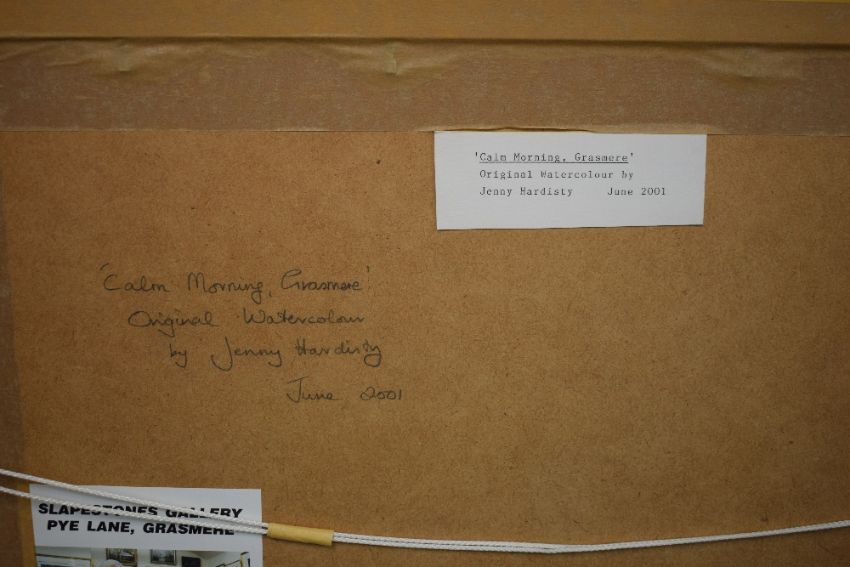 'Calm Morning, Grasmere'
Original Watercolour by
Jenny Hardisty June 2001
'Calm Morning, Grasmere'
Original Watercolour
by Jenny Hardisty
June 2001
SLAPESTONES GALLERY
PYE LANE, GRASMERE